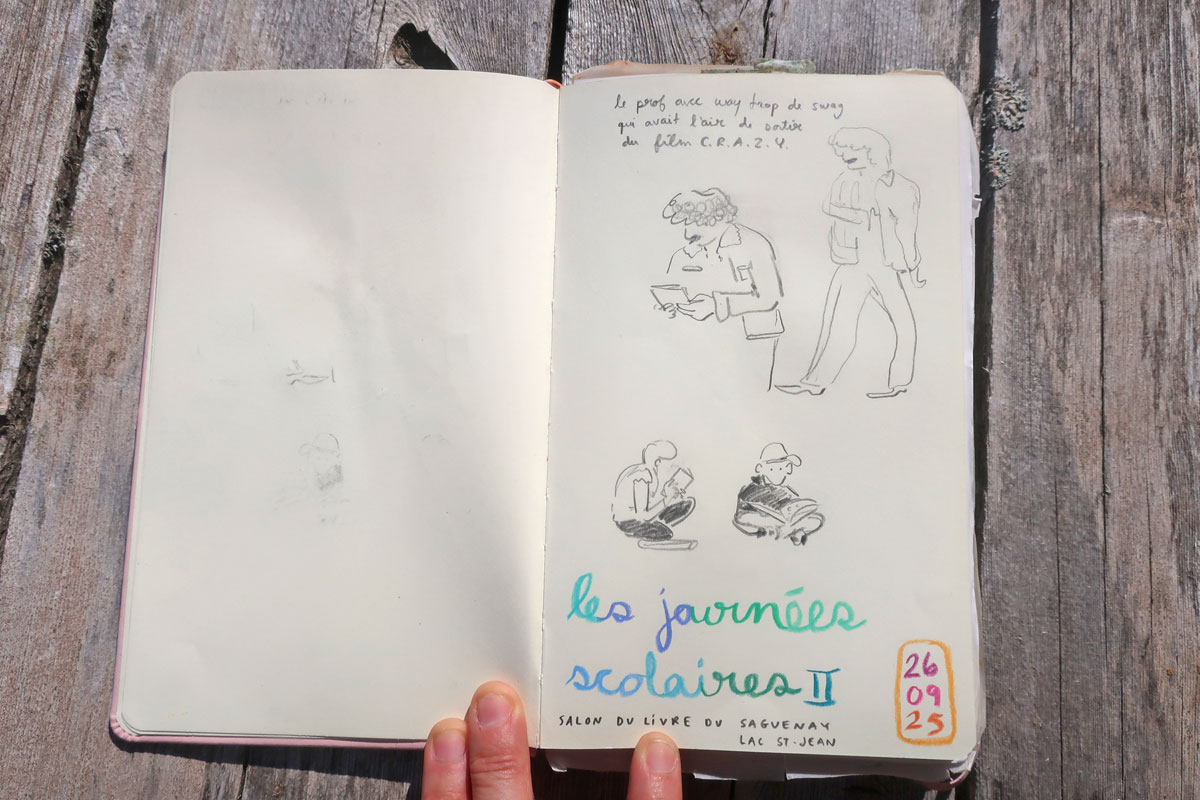 le prof avec way trop de swag
qui avait l'air de sortir
du film C.R.A.Z.Y.
les journées
scolaires II
26
09
25
SALON DU LIVRE DU SAGUENAY
LAC ST-JEAN